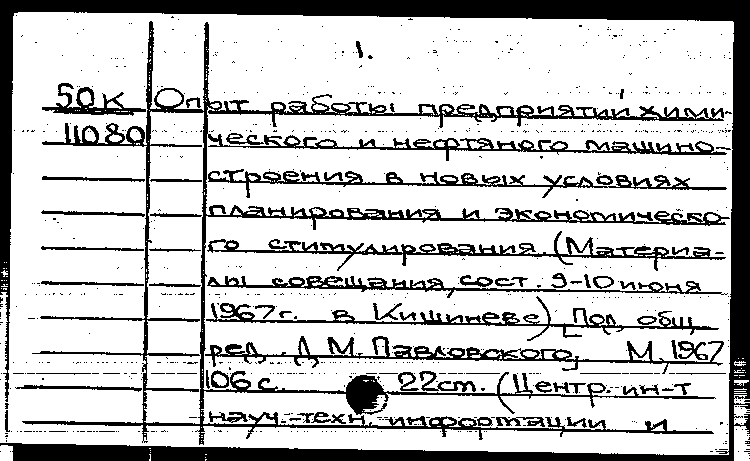 1.
50К Опыт работы предприятий хими-
11080 ческого и нефтяного машино-
строения в новых условиях
планирования и экономическо-
го стимулирования. (Материа-
лы совещания, сост. 9-10 июня
1967г. в Кишиневе). [Под общ.
ред. Д.М. Павловского]. М., 1967
106 с. 22см. (Центр. ин-т
науч.-техн. информации и